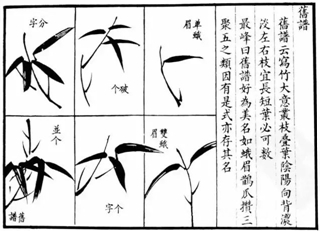 舊譜
舊譜云寫竹大意叢枝疊葉陰陽向背濃
淡左右枝宜長短葉必可數
最峰曰舊譜好為美名如蛾眉鵲爪攢三
聚五之類因有是式亦存其名
单蛾
眉
破个
分字
雙蛾
眉
个字
並个
舊譜